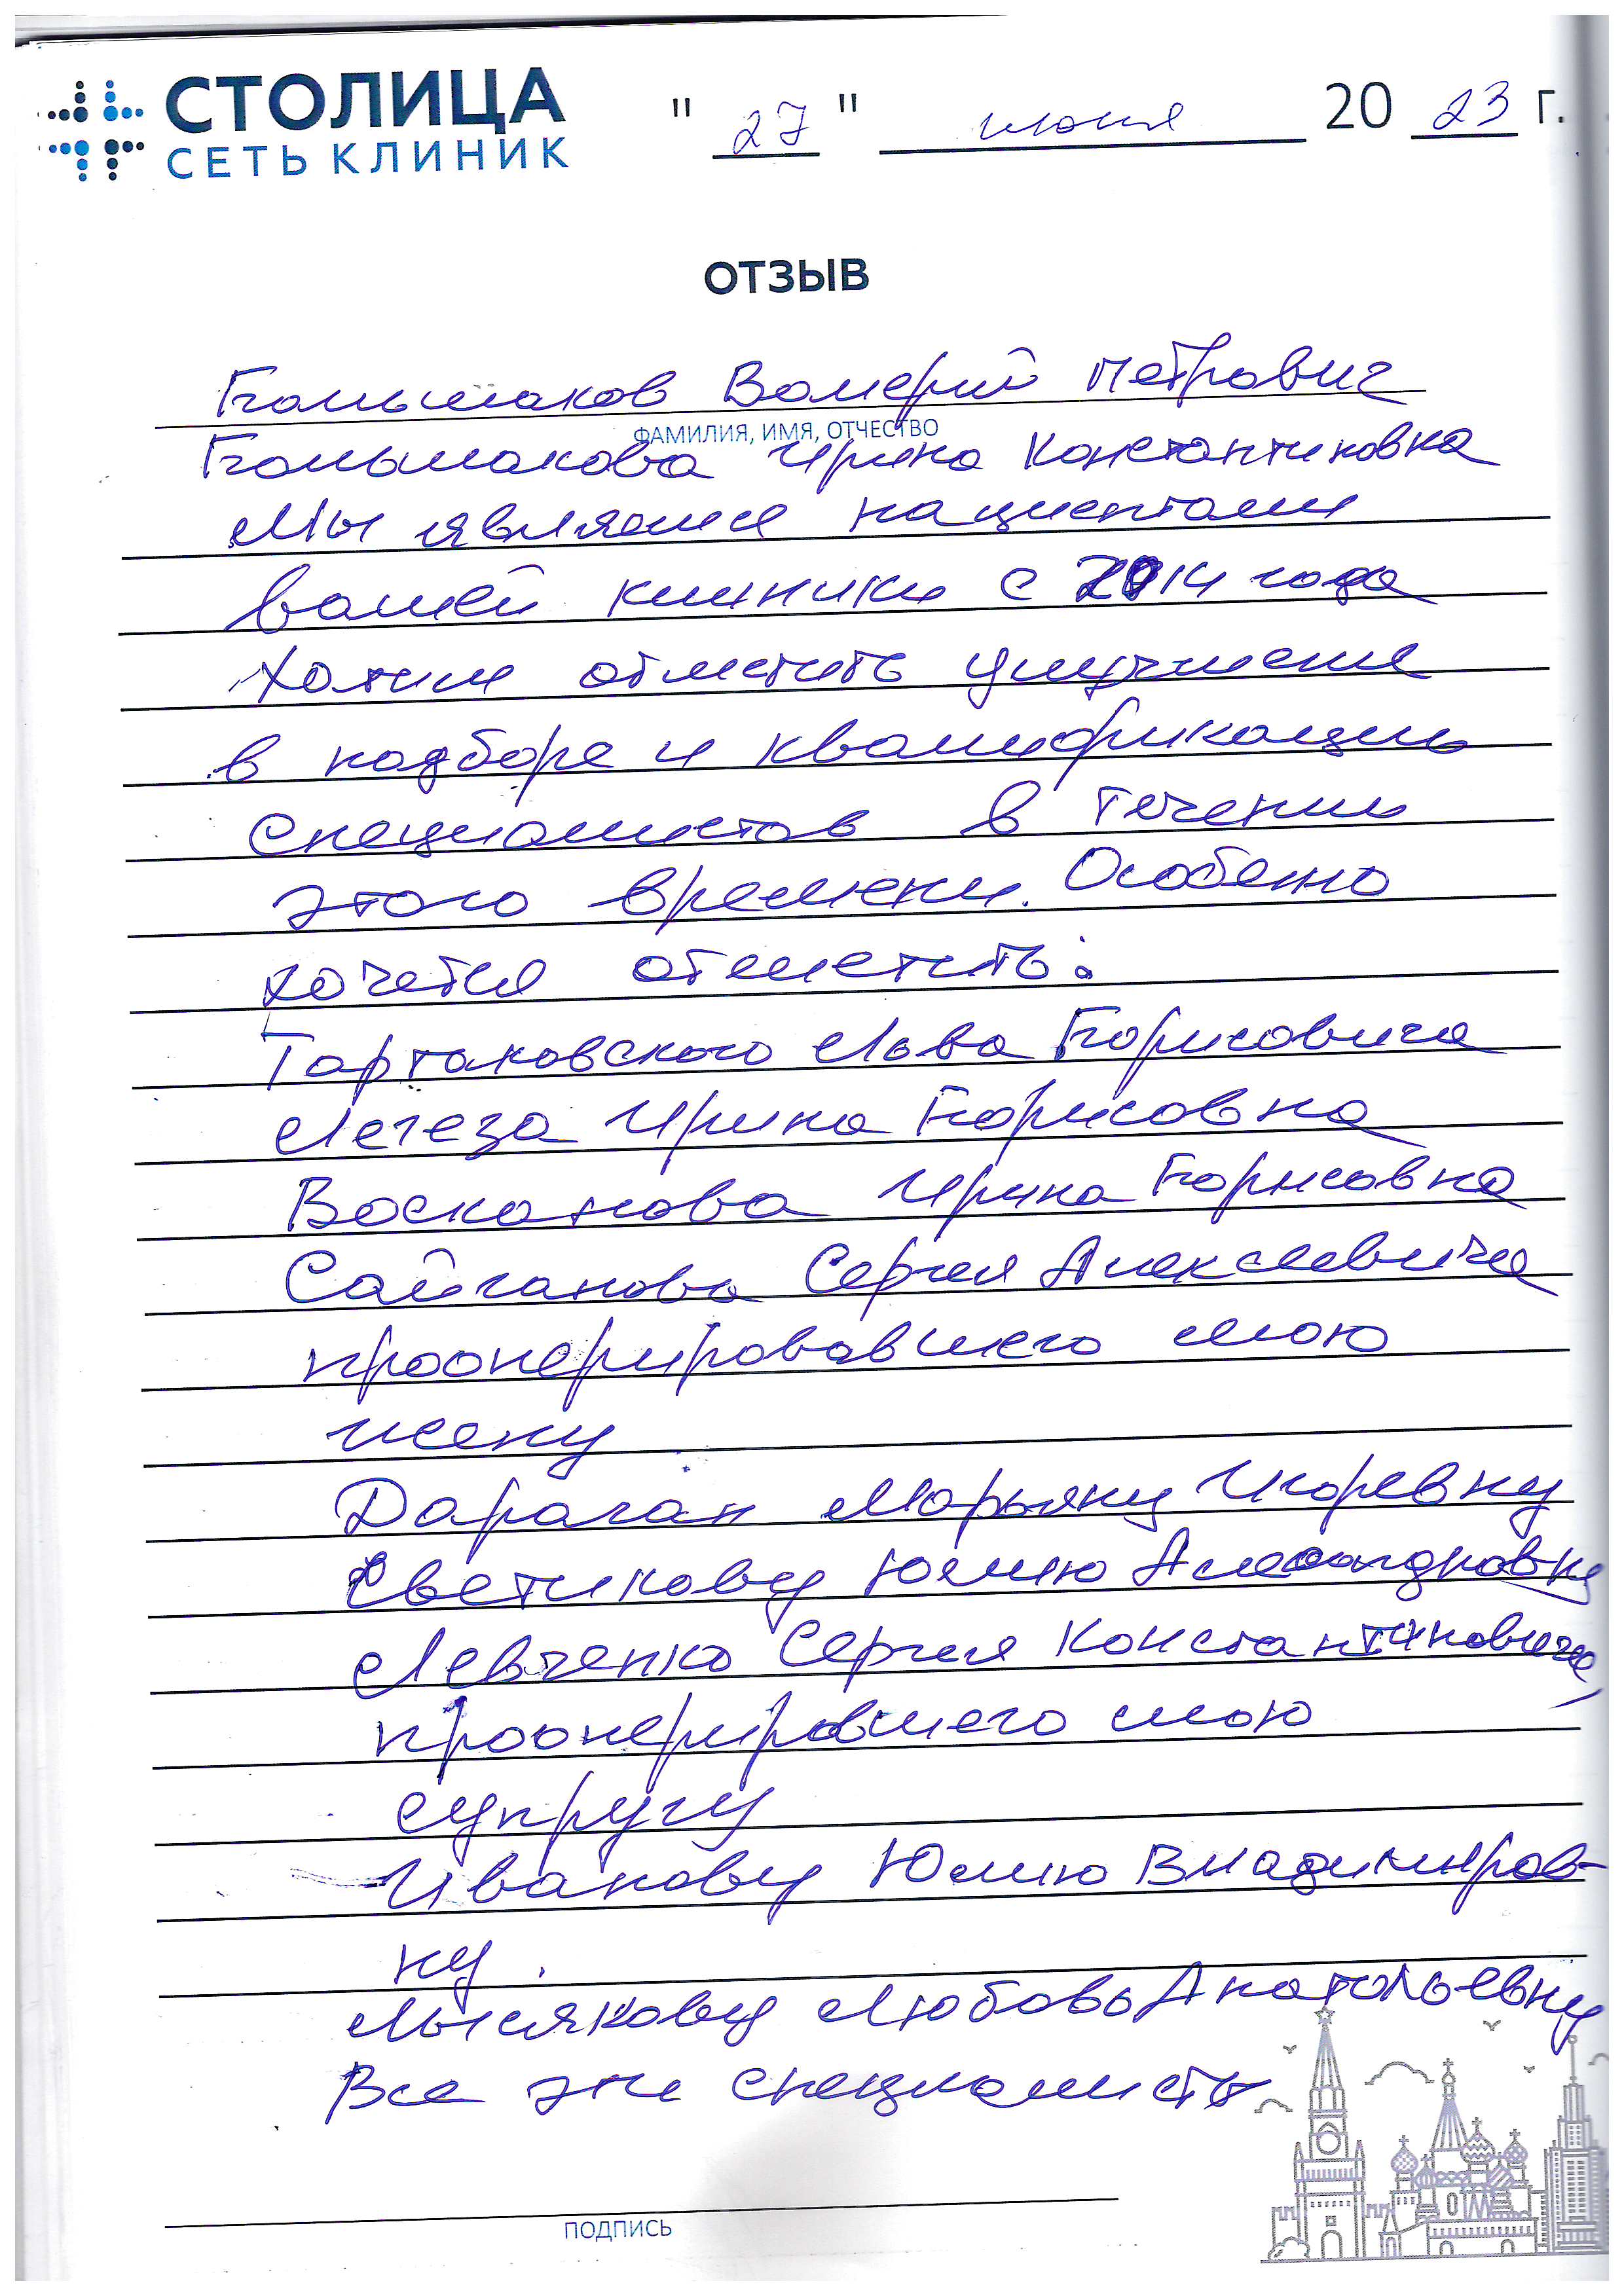 СТОЛИЦА
СЕТЬ КЛИНИК
" 27 " июня 20 23 г.
ОТЗЫВ
Большаков Валерий Петрович
ФАМИЛИЯ, ИМЯ, ОТЧЕСТВО
Большакова Ирина Константиновна
Мы являемся пациентами
вашей клиники с 2014 года
Хотим отметить улучшения
в подборе и квалификации
специалистов в течении
этого времени. Особенно
хочется отметить:
Тартаковского Льва Борисовича
Легеза Ирина Борисовна
Восканова Ирина Борисовна
Сайганова Сергея Алексеевича
прооперировавшего мою
жену
Дараган Марьяну Игоревну
Светикову Юлию Александровну
Левченко Сергея Константиновича,
прооперировшего мою
супругу
Иванову Юлию Владимиров-
ну.
Мысякову Любовь Анатольевну
Все эти специалисты
ПОДПИСЬ